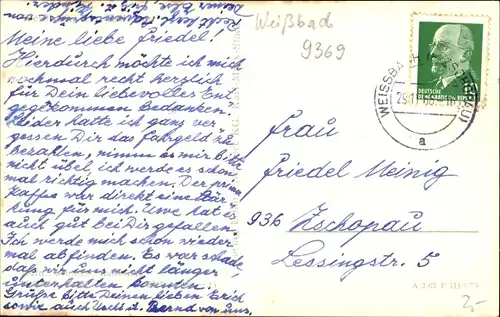 Recht herzl.
Meine liebe Friedel!
Hierdurch möchte ich mich
nochmal recht herzlich
für Dein liebevolles Ent
gegenkommen bedanken.
Leider hatte ich ganz ver
gessen Dir das Fahrgeld zu
bezahlen, nimm es mir bitte
nicht übel, ich werde es schon
mal richtig machen. Der prima
Kaffee war direkt eine Stär
kung für mich. Uwe hat es
auch gut bei Dir gefallen.
Ich werde mich schon wieder
mal abfinden. Es war schade
daß wir uns nicht länger
unterhalten konnten.
Grüße bitte Deinen lieben Erich
sowie auch Uschi u. Bernd von uns.
Weißbad
9369
DEUTSCHE
DEMOKRATISCHE
WEISSBA
a
Frau
Friedel Meinig
936 Zschopau
Lessingstr. 5